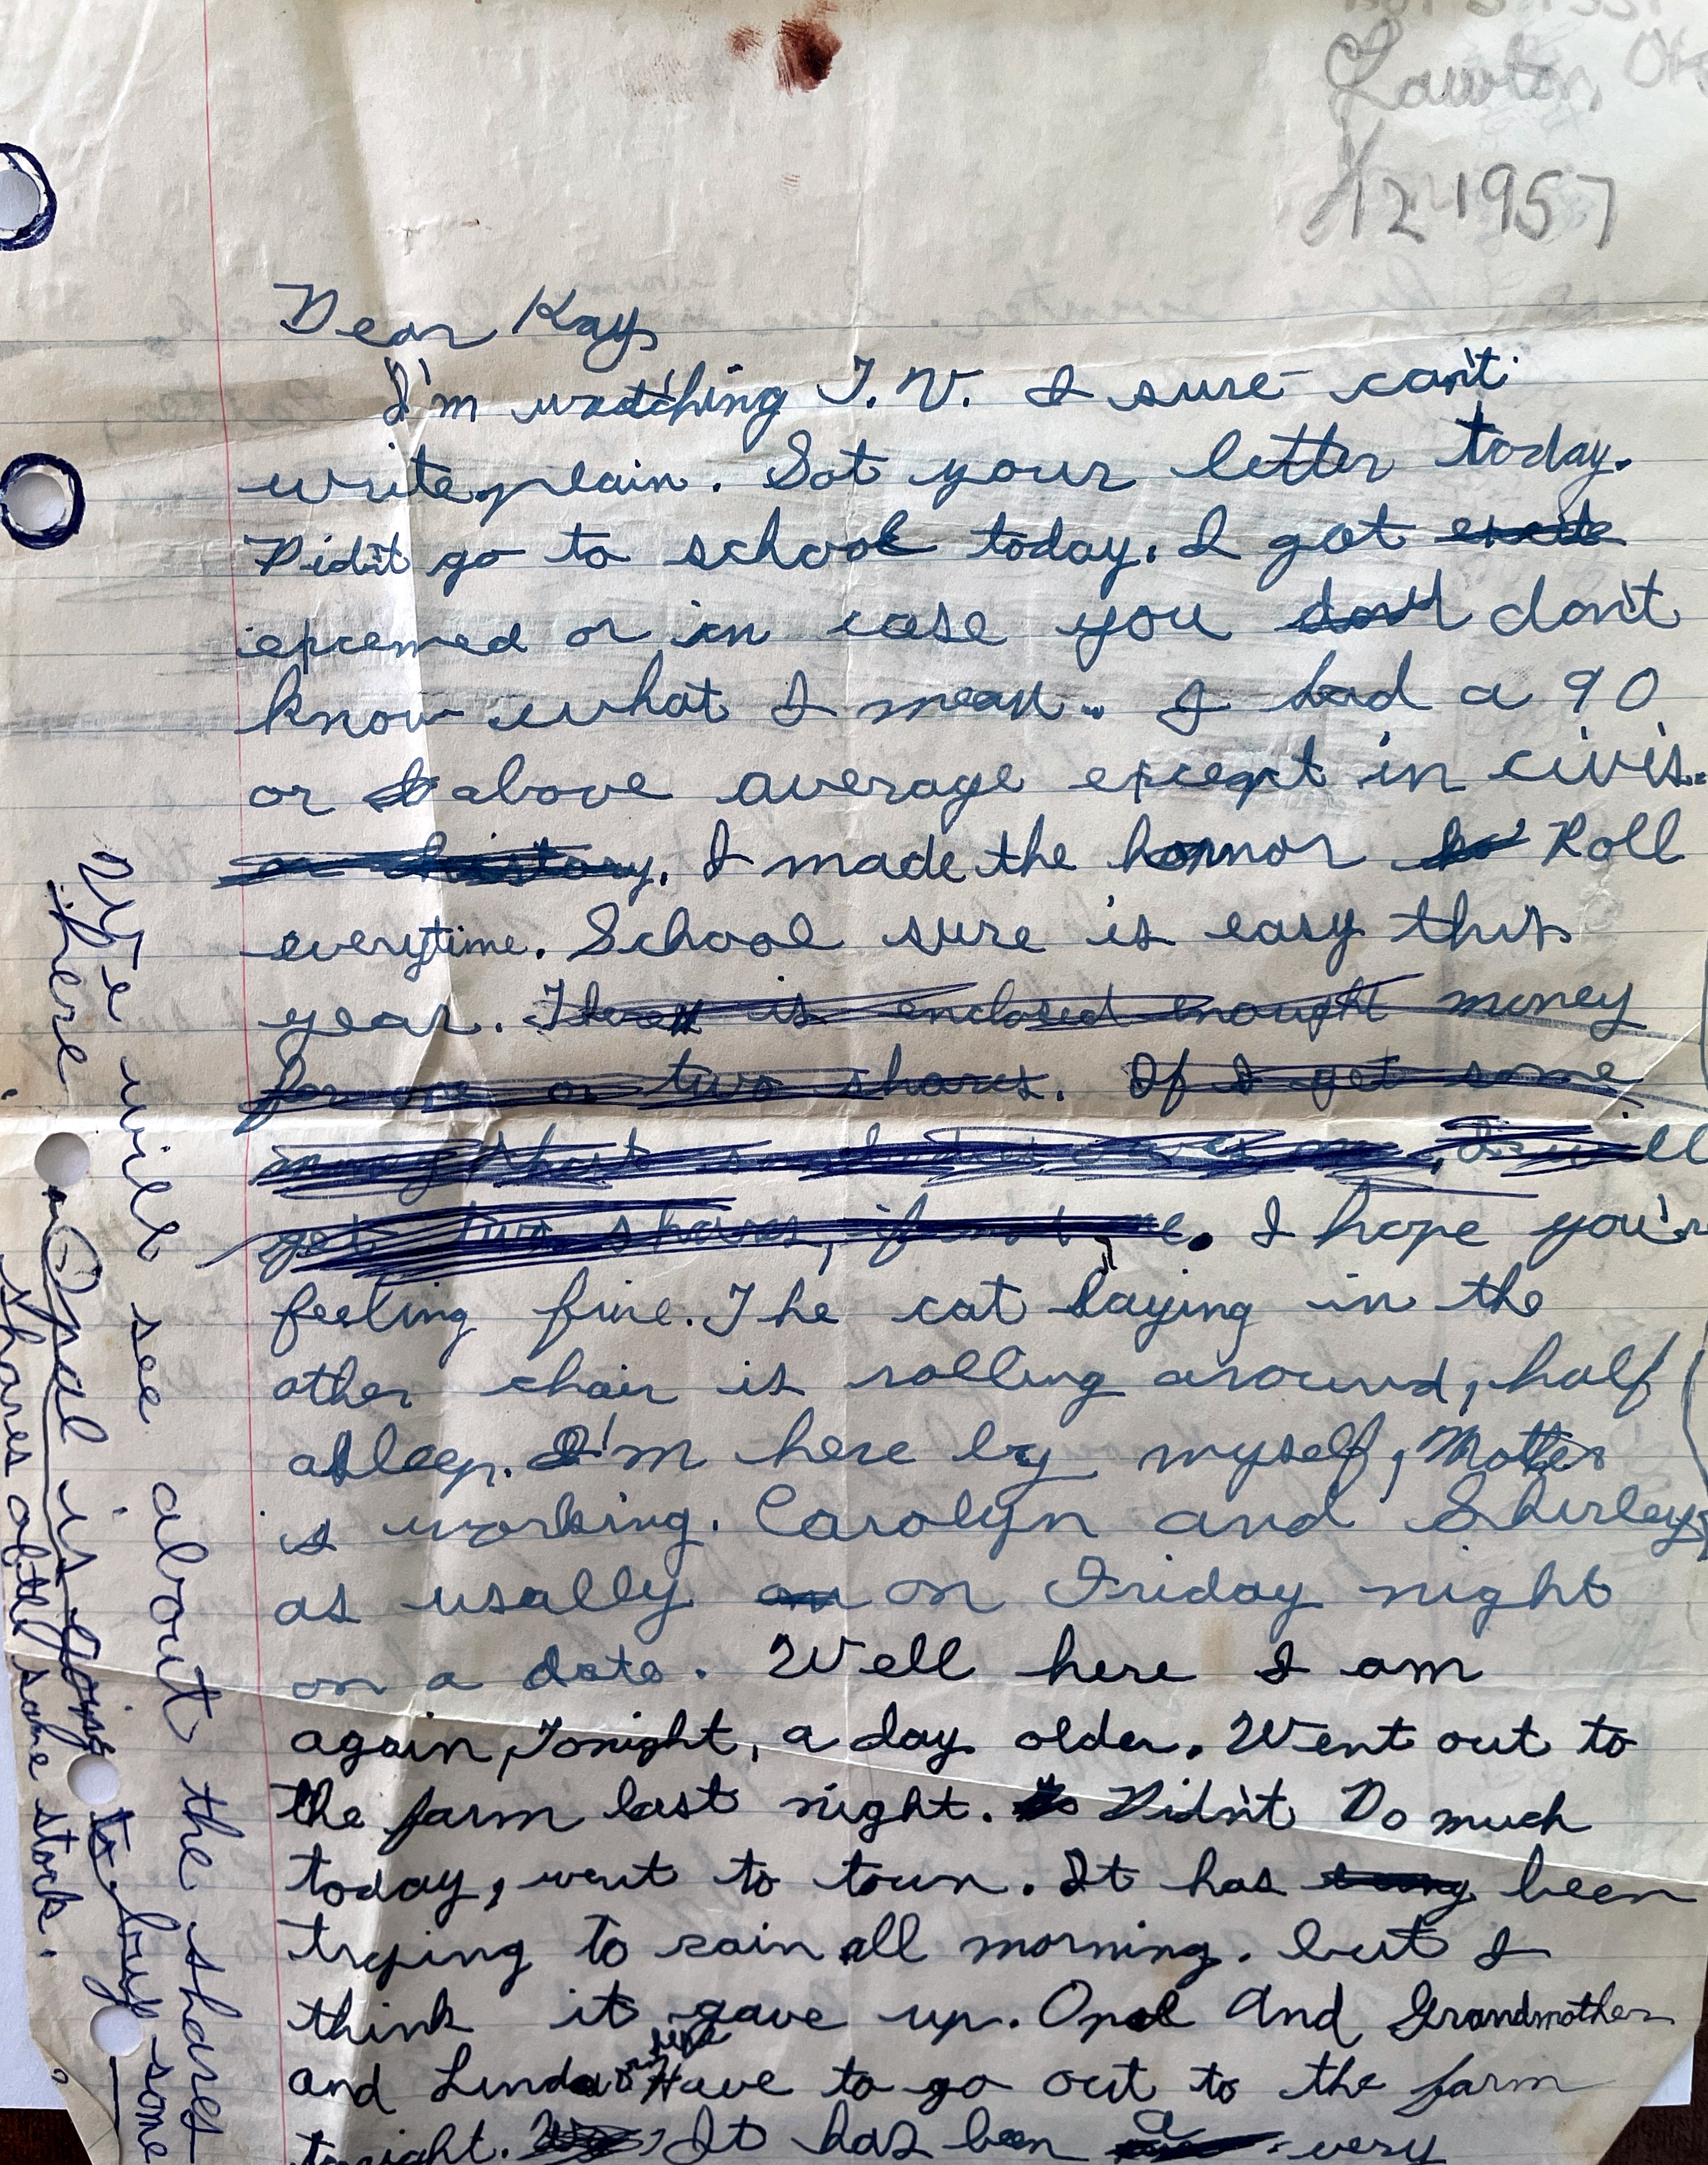 Lawton
12-1957
Dear Kay
I'm watching T.V. I sure can't
write plain. Got your letter today.
Didn't go to school today. I got
excemed or in case you don't
know what I mean. I had a 90
or above average except in civis.
or history. I made the honnor Roll
everytime. School sure is easy this
year. There is enclosed enought money
for one or two shares. If I get some
money that somebodies owes me, I will
get two shares, if not one. I hope you'r
feeling fine. The cat laying in the
other chair is rolling around, half
asleep. I'm here by myself, Mother
is working. Carolyn and Shirley
as usally on on Friday night
on a date. Well here I am
again, Tonight, a day older. Went out to
the farm last night. Didn't Do much
today, went to town. It has been
trying to rain all morning. but I
think it gave up. Opal And Grandmother
and Linda Have to go out to the farm
tonight. It has been a very
We will see about the shares
here
Opal is going to buy some
shares of the same stock.